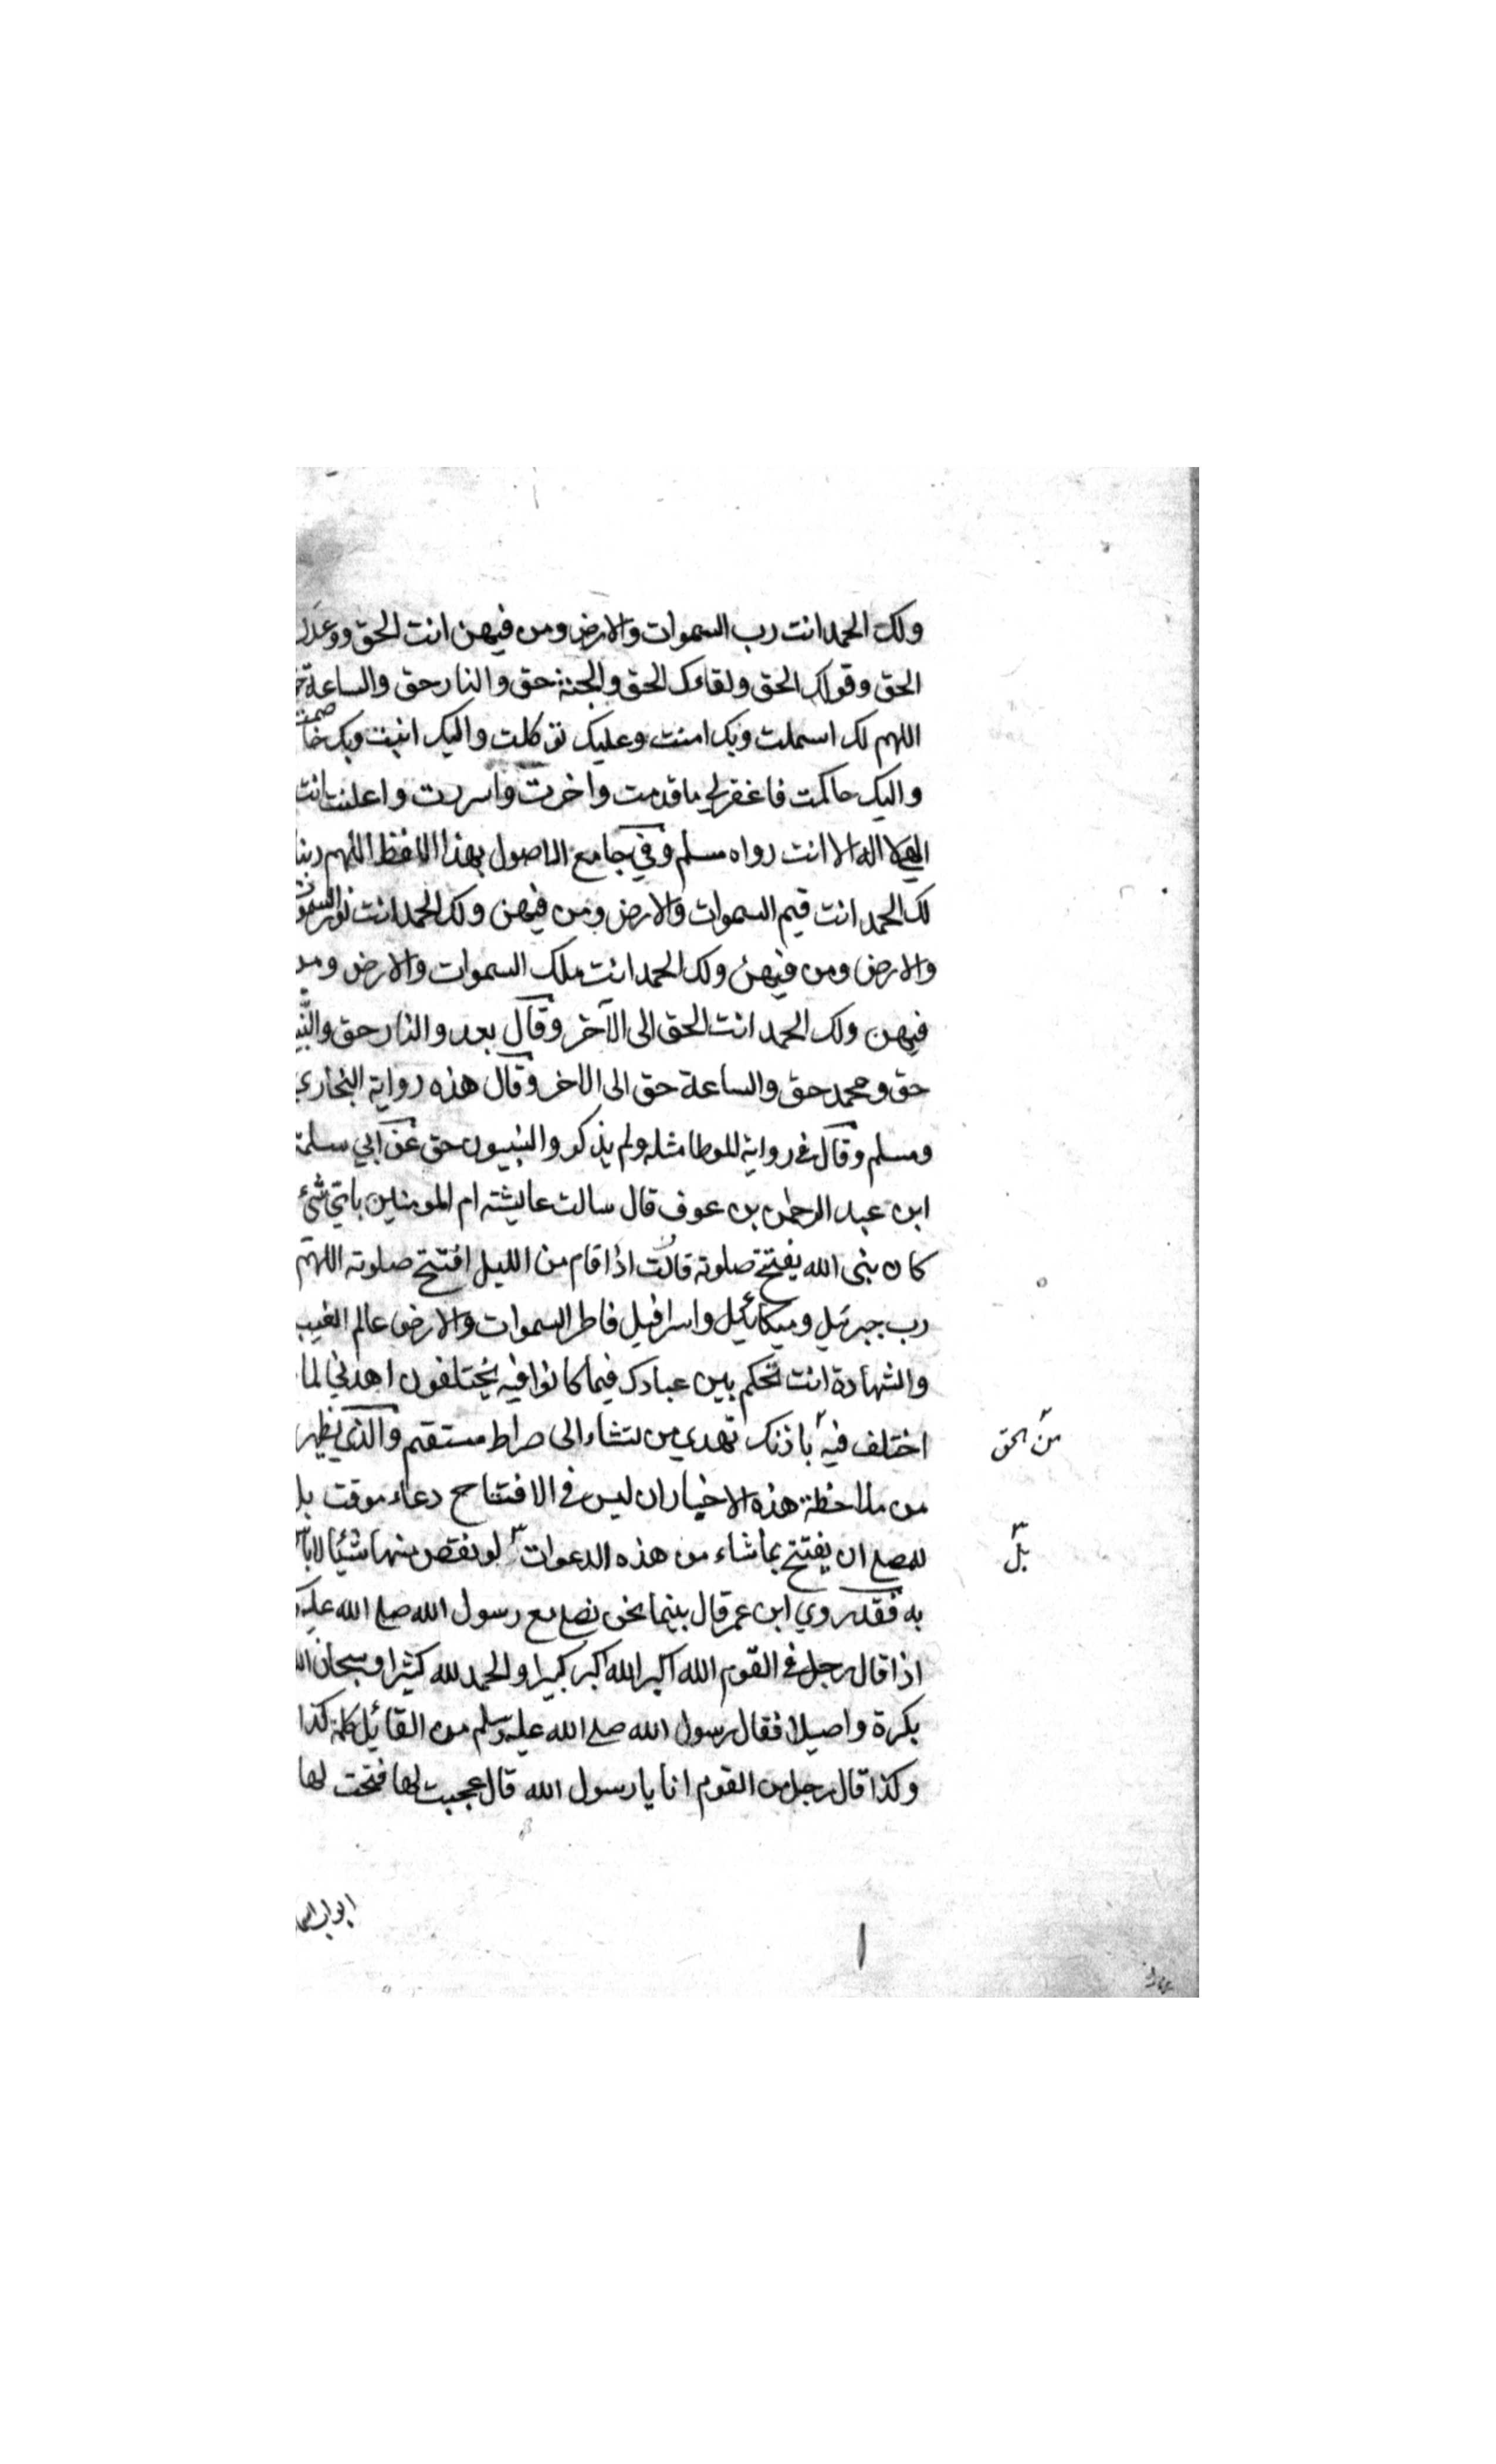 ولك الحمد انت رب السموات والارض ومن فيهن انت الحق ووعدك
الحق وقولك الحق ولقاءك الحق والجنة حق والنار حق والساعة
اللهم لك اسملت وبك امنت وعليك توكلت واليك انبت وبك خاصمت
واليك حاكمت فاغفرلي ماقدمت واخرت واسررت واعلنت انت
الهي لا اله الا انت رواه مسلم وفي جامع الاصول بهذا اللفظ اللهم ربنا
لك الحمد انت قيم السموات والارض ومن فيهن ولك الحمد انت نور السموات
والارض ومن فيهن ولك الحمد انت ملك السموات والارض ومن
فيهن ولك الحمد انت الحق الى الآخر وقال بعد والنار حق
حق ومحمد حق والساعة حق الى الاخر وقال هذه رواية البخاري
ومسلم وقال في رواية للموطا مثله ولم يذكر والنبيون حق عن ابي سلمة
ابن عبد الرحمن بن عوف قال سالت عايشة ام المومنين باي شئ
كان نبى الله يفتتح صلوته قالت اذا قام من الليل افتتح صلوته اللهم
رب جبرئيل وميكائيل واسرافيل فاطر السموات والارض عالم الغيب
والشهادة انت تحكم بين عبادك فيما كانوا فيه يختلفون اهدني لما
اختلف فيه باذنك تهدي من تشاء الى صراط مستقيم والذي يظهر
من الحق
من ملاحظة هذه الاخبار ان ليس في الافتتاح دعاء موقت بل
للمصلى ان يفتتح بما شاء من هذه الدعوات لو نقص منها شيئا لا
بل
به فقد روي ابن عمر قال بينما نحن نصلى مع رسول الله صلى الله عليه
اذا قال رجل في القوم الله اكبر الله اكبر كبيرا والحمد لله كثيرا وسبحان الله
بكرة واصيلا فقال رسول الله صلى الله عليه وسلم من القائل كلمة كذا
وكذا قال رجل من القوم انا يا رسول الله قال عجبت لها فتحت لها
ابواب